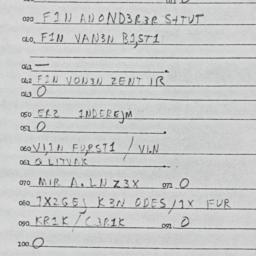 020. F1N ANOND3R3R S+TUT
040. F1N VAN3N B1,ST1
041. —
042. F1N VON3N ZENT IR
043. O
050 ERZ INDEREJM
051. O
060 VI,1N FURST1 / VI.N
062. Q LITVAK
070 MIR A.LN Z3X 071. O
080. 7X2GEJ K3N ODES/7X FUR
090. KR1K / C3R1K 091. O
100. O